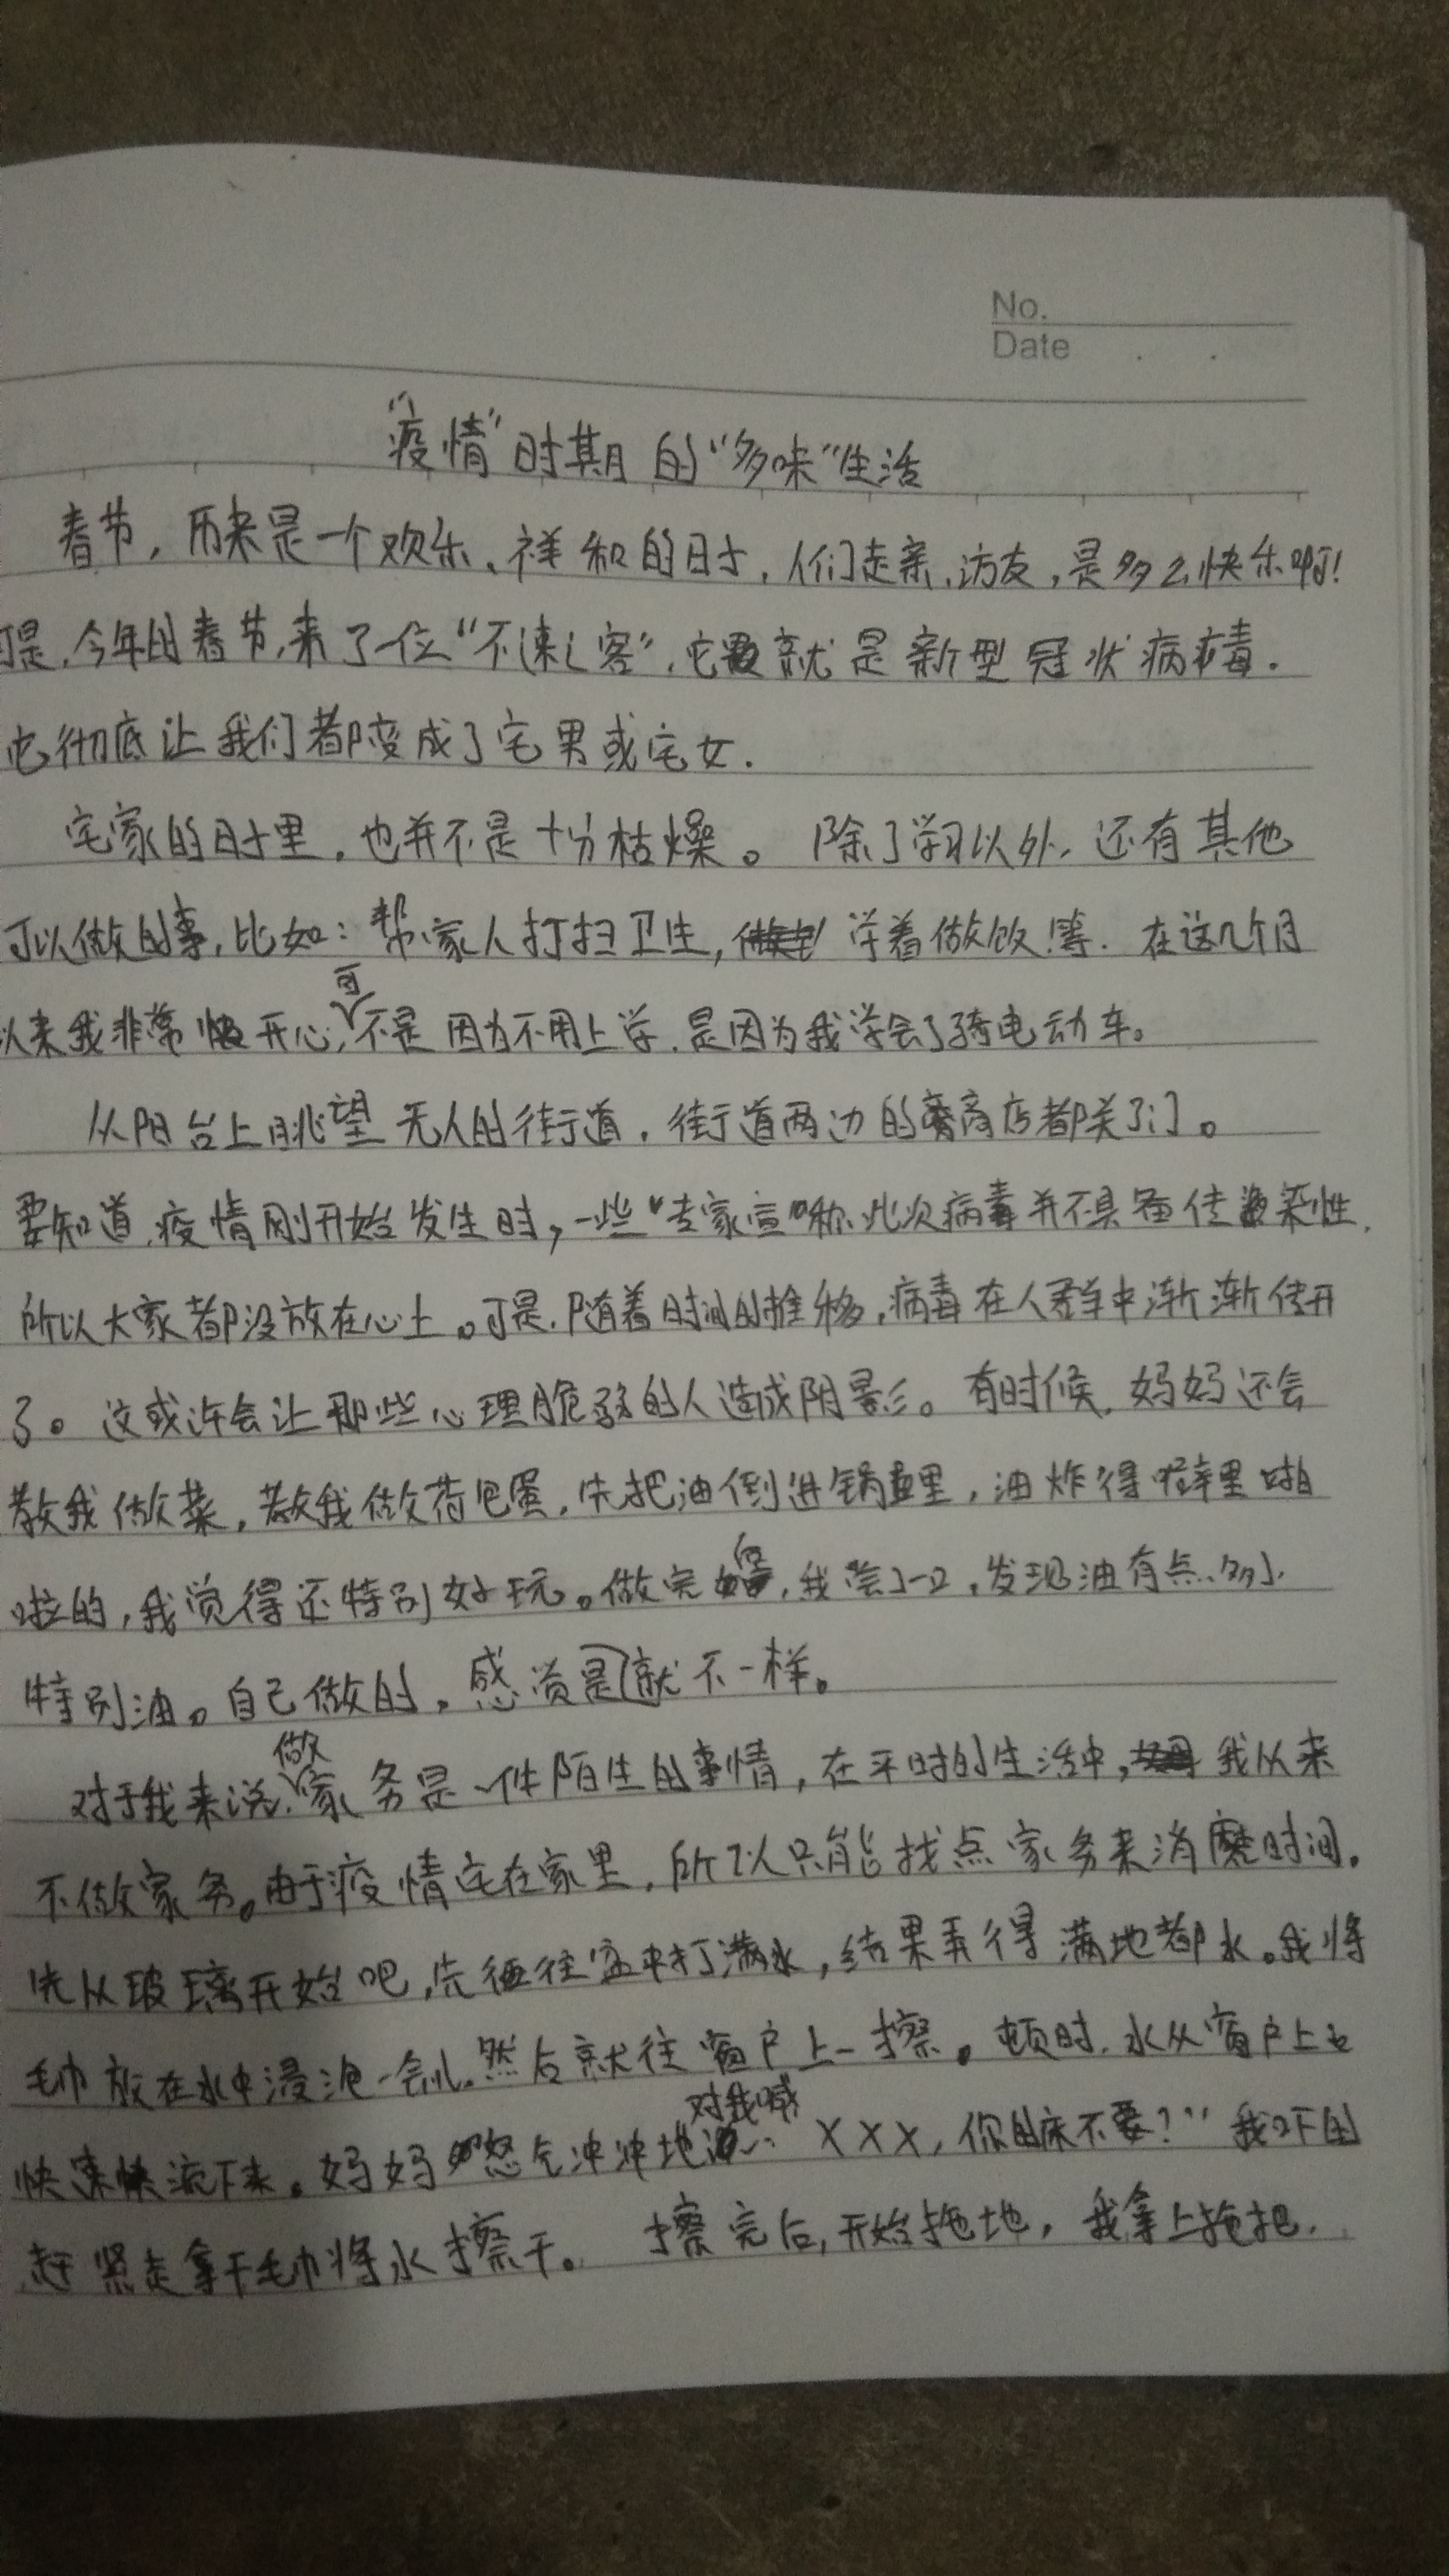 No.
Date
"疫情"时期的"多味"生活
春节,历来是一个欢乐、祥和的日子,人们走亲、访友,是多么快乐啊!
可是,今年的春节,来了一位"不速之客",它就是新型冠状病毒.
它彻底让我们都变成了宅男或宅女.
宅家的日子里,也并不是十分枯燥。除了学习以外,还有其他
可以做的事,比如:帮家人打扫卫生,学着做饭等.在这几个月
以来我非常开心,可不是因为不用上学,是因为我学会了骑电动车。
从阳台上眺望无人的街道,街道两边的商店都关了门。
要知道,疫情刚开始发生时,一些"专家宣"称此次病毒并不具备传染性,
所以大家都没放在心上。可是,随着时间的推移,病毒在人群中渐渐传开
了。这或许会让那些心理脆弱的人造成阴影。有时候,妈妈还会
教我做菜,教我做荷包蛋,先把油倒进锅里,油炸得噼里啪
啦的,我觉得还特别好玩。做完后,我尝了一口,发现油有点多了,
特别油。自己做的,感觉是就不一样。
对于我来说,做家务是一件陌生的事情,在平时的生活中,我从来
不做家务。由于疫情宅在家里,所以只能找点家务来消磨时间。
先从玻璃开始吧,先往盆中打满水,结果弄得满地都水。我将
毛巾放在水中浸泡一会儿,然后就往窗户上一擦。顿时,水从窗户上
快速流下来。妈妈怒气冲冲地对我喊:"XXX,你的床不要?"我吓的
赶紧走拿干毛巾将水擦干。擦完后,开始拖地,我拿上拖把,